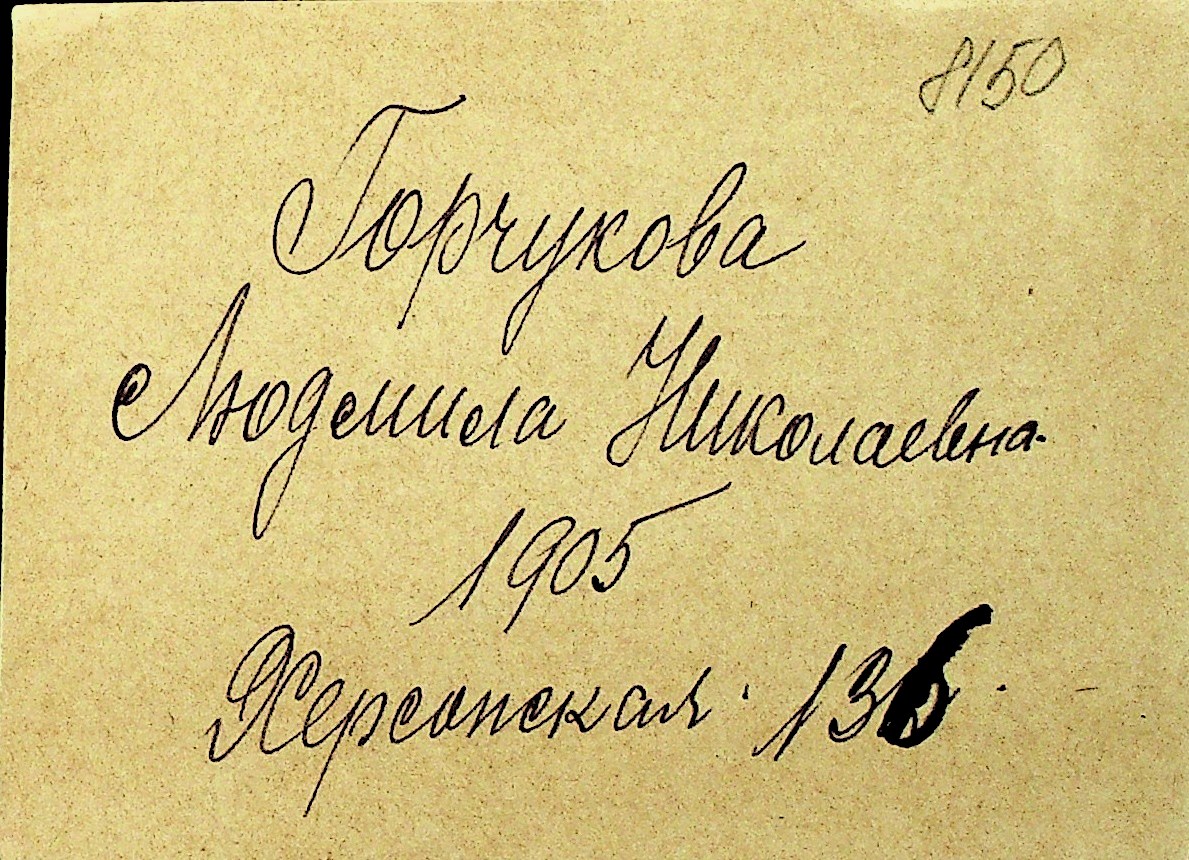 8150
Горчукова
Людмила Николаевна.
1905
Херсонская. 136.